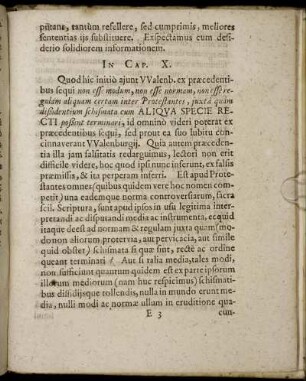 pistans, tantùm refellere, sed cumprimis, meliores
sententias iis substituere. Expectamus cum desi-
derio solidiorem informationem.
IN CAP. X.
Quod hîc initiò ajunt VValenb. ex præcedenti-
bus sequi non esse modum, non esse normam, non esse re-
gulam aliquam certam inter Protestantes, juxta quam
dissidentium schismata cum ALIQVA SPECIE RE-
CTI possint terminari, id omninò videri poterat ex
præcedentibus sequi, sed prout ea suo lubitu con-
cinnaverant VValenburgij. Quia autem præceden-
tia illa jam falsitatis redarguimus, lectori non erit
difficile videre, hoc quod ipsimet inferunt, ex falsis
præmissis, & ita perperam inferri. Est apud Prote-
stantes omnes (quibus quidem vere hoc nomen com-
petit) una eademque norma controversiarum, sacra
scil. Scriptura, sunt apud ipsos in usu legitima inter-
pretandi ac disputandi media ac instrumenta, ecquid
itaque deest ad normam & regulam juxta quam (mo-
dò non aliorum protervia, aut pervicacia, aut simile
quid obstet) schismata si quæ sint, rectè ac ordine
queant terminari? Aut si talia media, tales modi,
non sufficiunt quantum quidem est ex parte ipsorum
illorum mediorum (nam huc respicimus) schismati-
bus dissidijsque tollendis, nulla in mundo erunt me-
dia, nulli modi ac normæ ullum in eruditione qua-
E 3 cun-